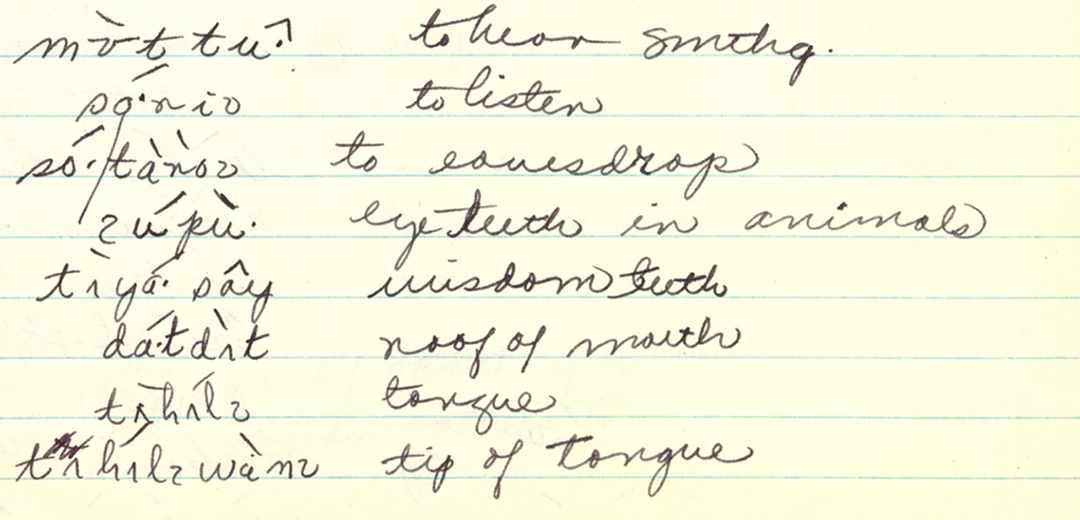 mòttû· to hear smthg.
só·niɔ to listen
só·tànoɂ to eavesdrop
ɂúpù· eyeteeth in animals
tìyá· sây wisdom teeth
dá·tdìt roof of mouth
tìhílɂ tongue
tìhílɂwànɂ tip of tongue